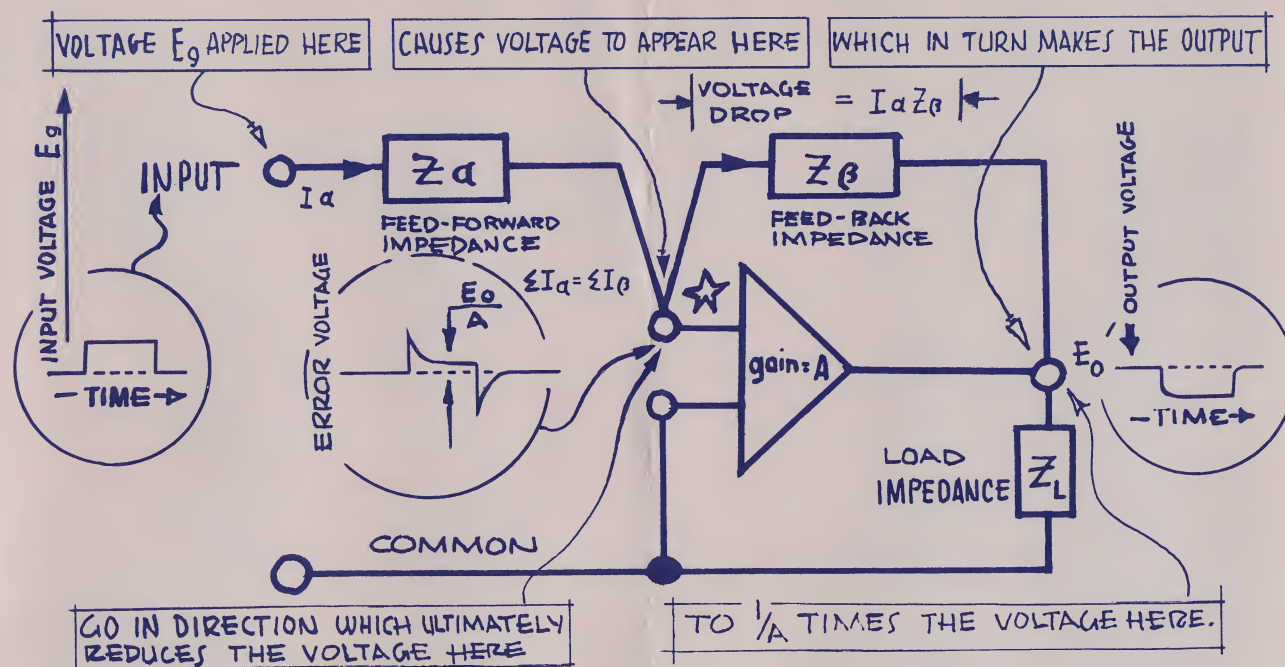 VOLTAGE Eg APPLIED HERE
CAUSES VOLTAGE TO APPEAR HERE
WHICH IN TURN MAKES THE OUTPUT
VOLTAGE
DROP = IαZβ
INPUT VOLTAGE Eg
INPUT
Iα
Zα
FEED-FORWARD
IMPEDANCE
Zβ
FEED-BACK
IMPEDANCE
OUTPUT VOLTAGE
TIME
ERROR VOLTAGE
Eo
A
ΣIα=ΣIβ
gain=A
Eo
TIME
LOAD
IMPEDANCE
ZL
COMMON
GO IN DIRECTION WHICH ULTIMATELY
REDUCES THE VOLTAGE HERE
TO 1/A TIMES THE VOLTAGE HERE.